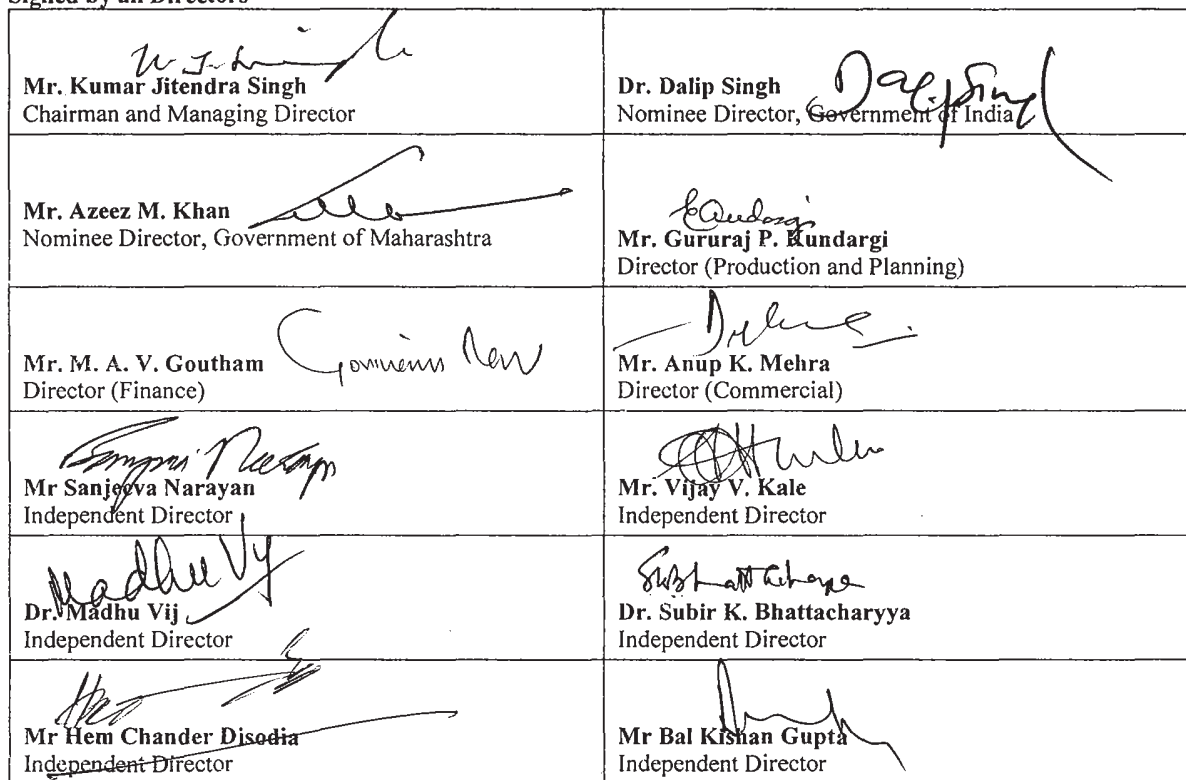 Signed by all Directors
Mr. Kumar Jitendra Singh
Chairman and Managing Director
Dr. Dalip Singh
Dalip Singh
Nominee Director, Government of India
Mr. Azeez M. Khan
Nominee Director, Government of Maharashtra
Mr. Gururaj P. Kundargi
Director (Production and Planning)
Mr. M. A. V. Goutham
Director (Finance)
Mr. Anup K. Mehra
Director (Commercial)
Mr Sanjeeva Narayan
Independent Director
Mr. Vijay V. Kale
Independent Director
Madhu Vij
Dr. Madhu Vij
Independent Director
Dr. Subir K. Bhattacharyya
Independent Director
Mr Hem Chander Disodia
Independent Director
Mr Bal Kishan Gupta
Independent Director